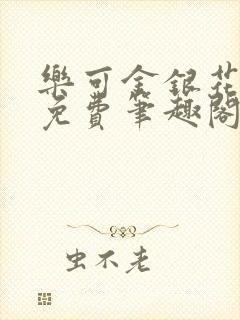 樂可金銀花
免費筆趣閣
虫不老